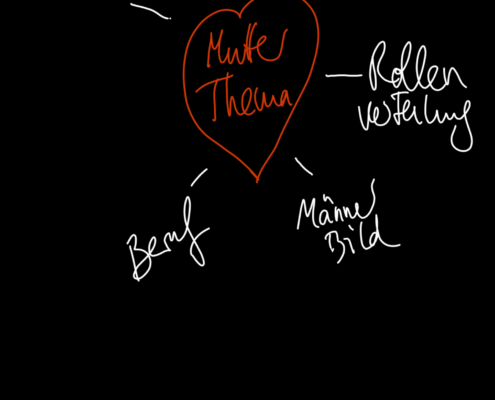 Mutter
Thema
Rollen
verteilung
Beruf
Männer
Bild